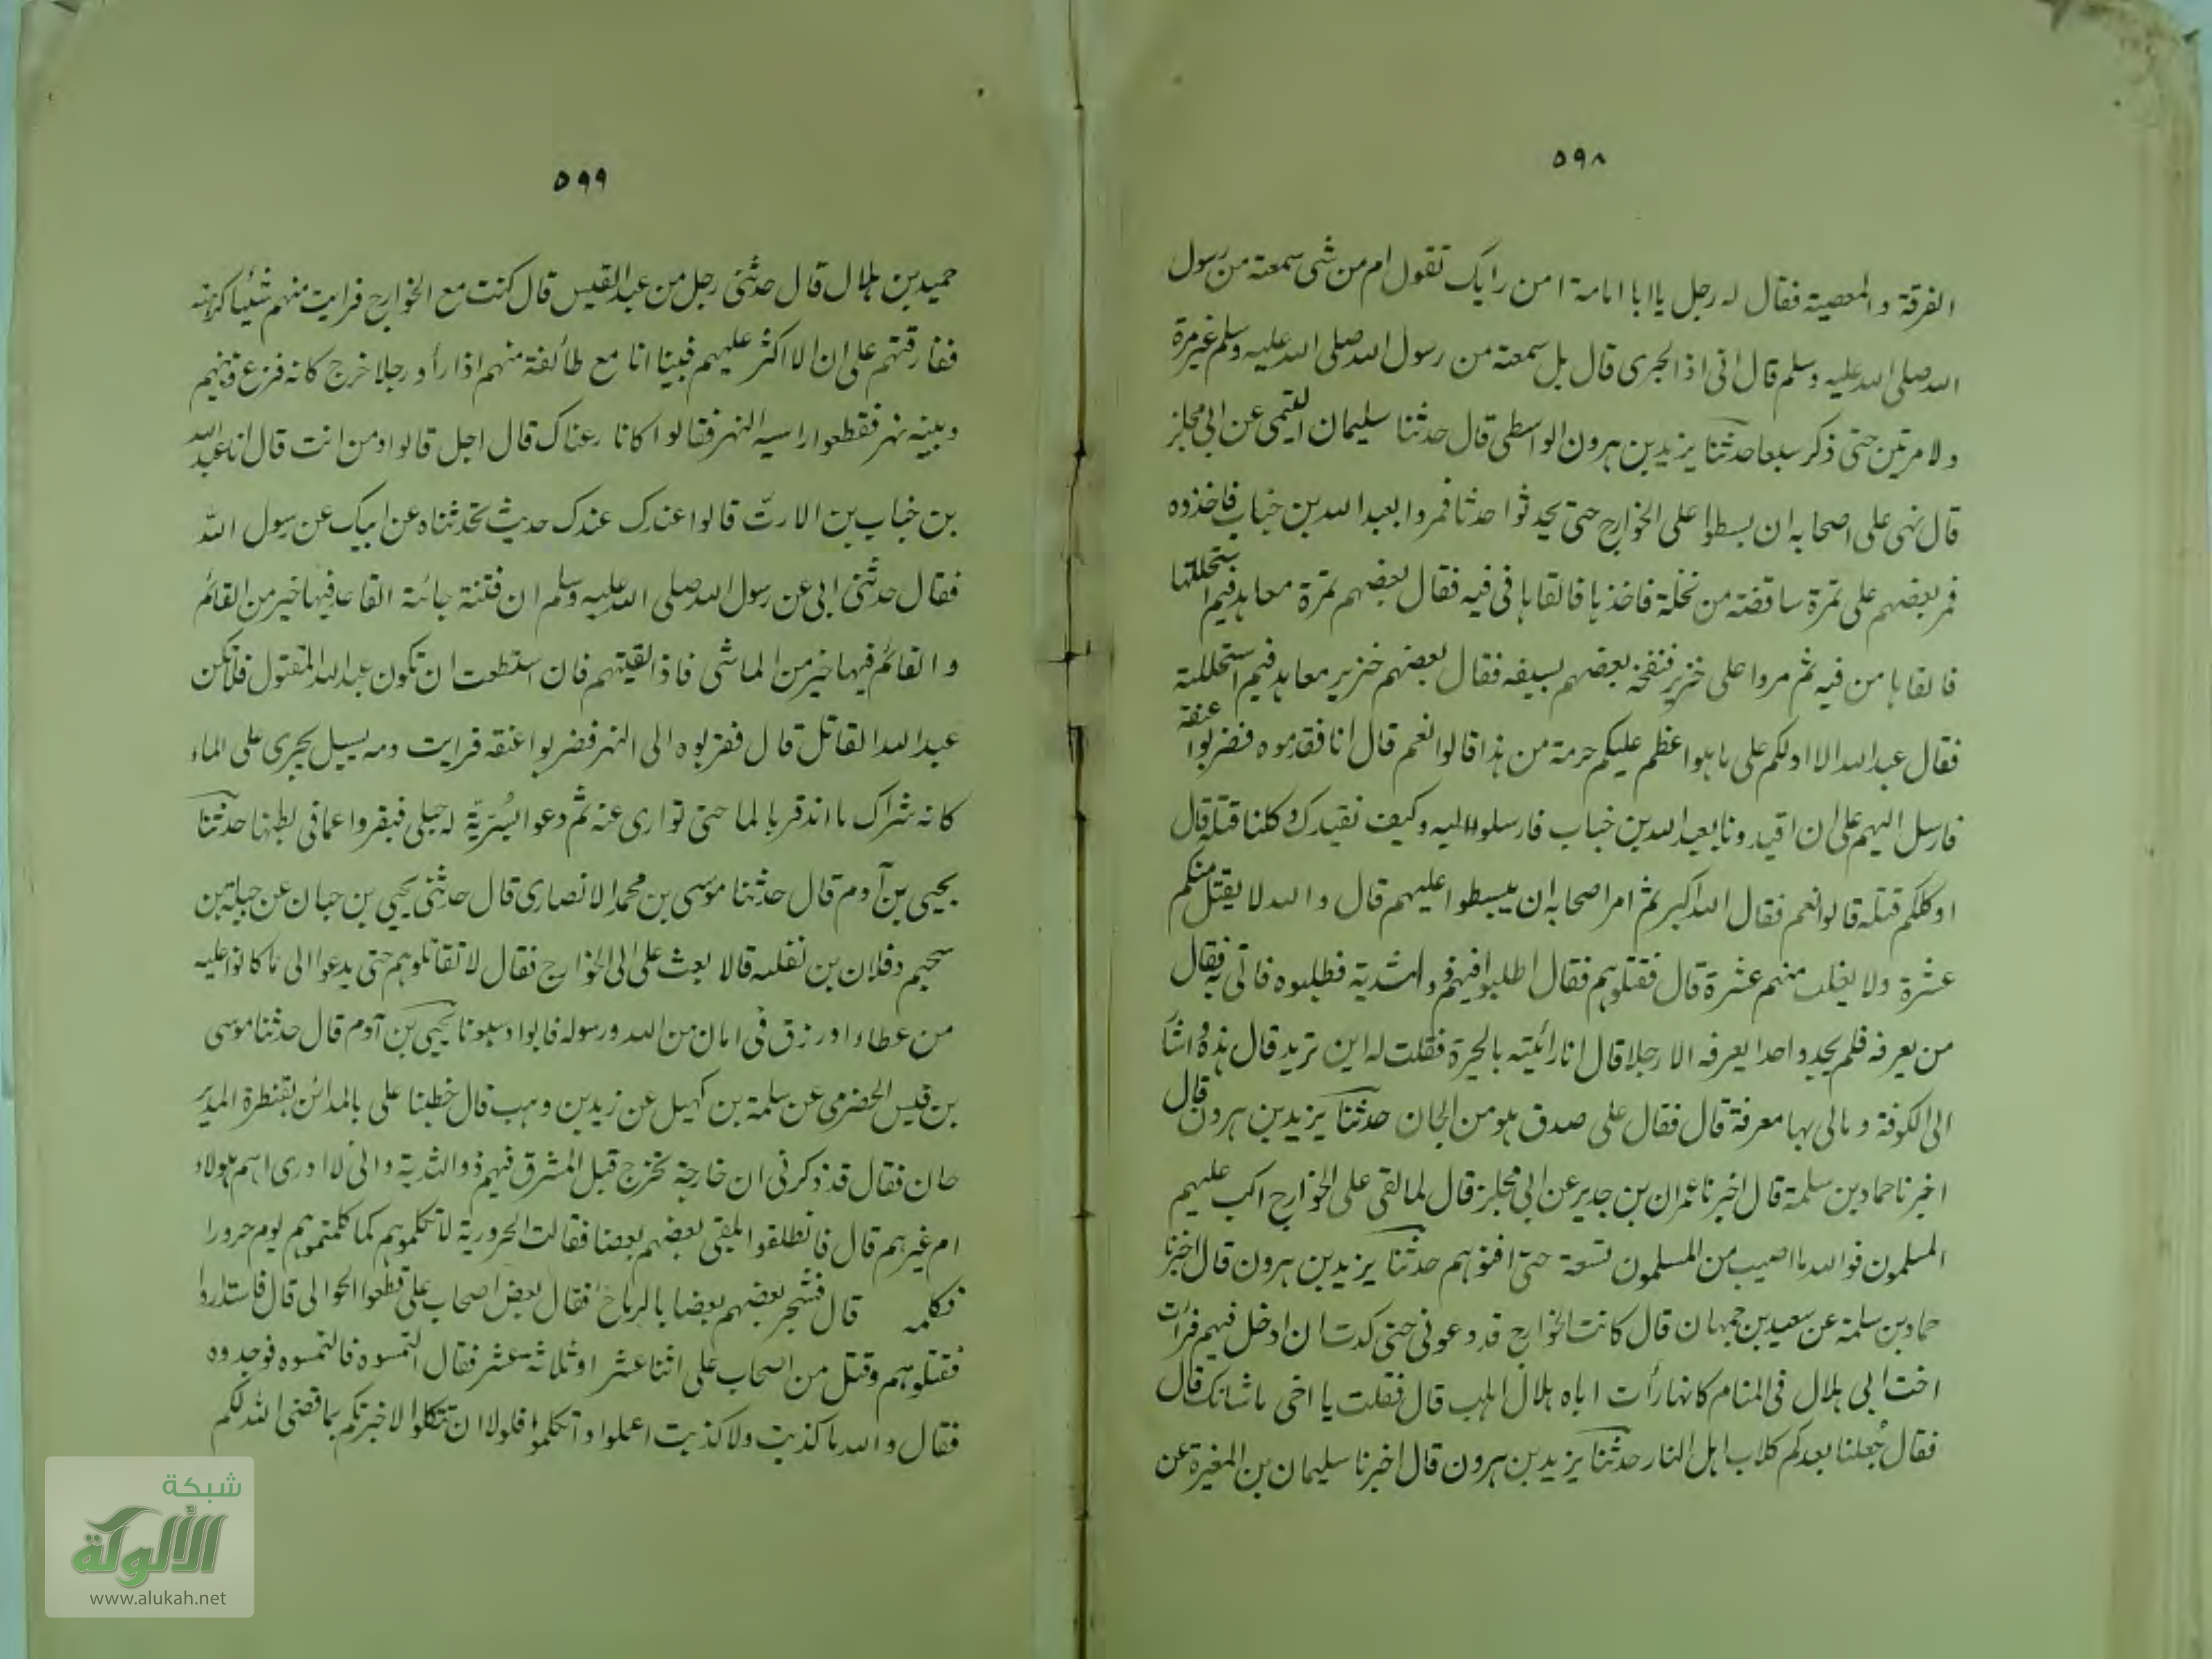 ٥٩٨
الفرقة والمعصية فقال له رجل يا ابا امامة امن رايك تقول ام من شى سمعته من رسول
الله صلى الله عليه وسلم قال انى اذا لجرى قال بل سمعته من رسول الله صلى الله عليه وسلم غير مرة
ولا مرتين حتى ذكر سبعا حدثنا يزيد بن هرون الواسطى قال حدثنا سليمان التيمى عن ابى مجلز
قال نهى على اصحابه ان يبسطوا على الخوارج حتى يحدثوا حدثا فمروا بعبد الله بن خباب فاخذوه
فمر بعضهم على تمرة ساقطة من نخلة فاخذها فالقاها فى فيه فقال بعضهم تمرة معاهد فبم استحللتها
فالقاها من فيه ثم مروا على خنزير فنفحه بعضهم بسيفه فقال بعضهم خنزير معاهد فبم استحللته
فقال عبد الله الا ادلكم على ما هو اعظم عليكم حرمة من هذا قالوا نعم قال انا فقدموه فضربوا عنقه
فارسل اليهم على ان اقيدونا بعبد الله بن خباب فارسلوا اليه وكيف نقيدك وكلنا قتله قال
اوكلكم قتله قالوا نعم فقال الله اكبر ثم امر اصحابه ان يبسطوا عليهم قال والله لا يقتل منكم
عشرة ولا يفلت منهم عشرة قال فقتلوهم فقال اطلبوا فيهم ذو الثدية فطلبوه فاتى به فقال
من يعرفه فلم يجدوا احدا يعرفه الا رجلا قال انا رائيته بالحيرة فقلت له اين تريد قال هذه واشار
الى الكوفة ومالى بها معرفة قال فقال على صدق هو من الجان حدثنا يزيد بن هرون قال
اخبرنا حماد بن سلمة قال اخبرنا عمران بن جدير عن ابى مجلز قال لما لقى على الخوارج اكب عليهم
المسلمون فوالله ما اصيب من المسلمون تسعة حتى افنوهم حدثنا يزيد بن هرون قال اخبرنا
حماد بن سلمة عن سعيد بن جمهان قال كانت الخوارج قد دعونى حتى كدت ان ادخل فيهم فرأت
اخت ابى بلال فى المنام كانها رأت اباه بلال اهلب قال فقلت يا اخى ما شانك قال
فقال جُعلنا بعدكم كلاب اهل النار حدثنا يزيد بن هرون قال اخبرنا سليمان بن المغيرة عن
٥٩٩
حميد بن هلال قال حدثنى رجل من عبد القيس قال كنت مع الخوارج فرايت منهم شئيا كرهته
ففارقتهم على ان لا اكثر عليهم فبينا انا مع طائفة منهم اذا رأو رجلا خرج كانه فزع وبينهم
وبينه نهر فقطعوا اليه النهر فقالوا كانا رعناك قال اجل قالوا ومن انت قال انا عبد الله
بن خباب بن الارتّ قالوا عندك عندك حديث تحدثناه عن ابيك عن رسول الله
فقال حدثنى ابى عن رسول الله صلى الله عليه وسلم ان فتنة جائية القاعد فيها خير من القائم
والقائم فيها خير من الماشى فاذا لقيتهم فان استطعت ان تكون عبد الله المقتول فلا تكن
عبد الله القاتل قال فقربوه الى النهر فضربوا عنقه فرايت دمه يسيل يجرى على الماء
كانه شراك ما اندقر بالما حتى توارى عنه ثم دعوا بسُريّة له حبلى فبقروا عما فى بطنها حدثنا
يحيى بن آدم قال حدثنا موسى بن محمد الانصارى قال حدثنى يحيى بن حبان عن جبلة بن
سحيم وفلان بن نضلة قالا بعث على الى الخوارج فقال لا تقاتلوهم حتى يدعوا الى ما كانوا عليه
من عطاء او رزق فى امان من الله ورسوله فابوا وسبونا يحيى بن آدم قال حدثنا موسى
بن قيس الحضرمى عن سلمة بن كهيل عن زيد بن وهب قال خطبنا على بالمدائن بقنطرة الديز
جان فقال قد ذكر لى ان خارجة تخرج قبل المشرق فيهم ذو الثدية وانى لا ادرى اهم هولاء
ام غيرهم قال فانطلقوا يلقى بعضهم بعضا فقالت الحرورية لا تكلموهم كما كلمتموهم يوم حرورا
فكلمه قال فشجر بعضهم بعضا بالرماح فقال بعض اصحاب على قطعوا العوالى قال فاستداروا
فقتلوهم وقتل من اصحاب على اثنا عشر او ثلاثة عشر فقال التمسوه فالتمسوه فوجدوه
فقال والله ما كذبت ولا كذبت اعملوا واتكلموا فلولا ان تتكلوا لاخبرتكم بما قضى الله لكم
شبكة
الألوكة
www.alukah.net